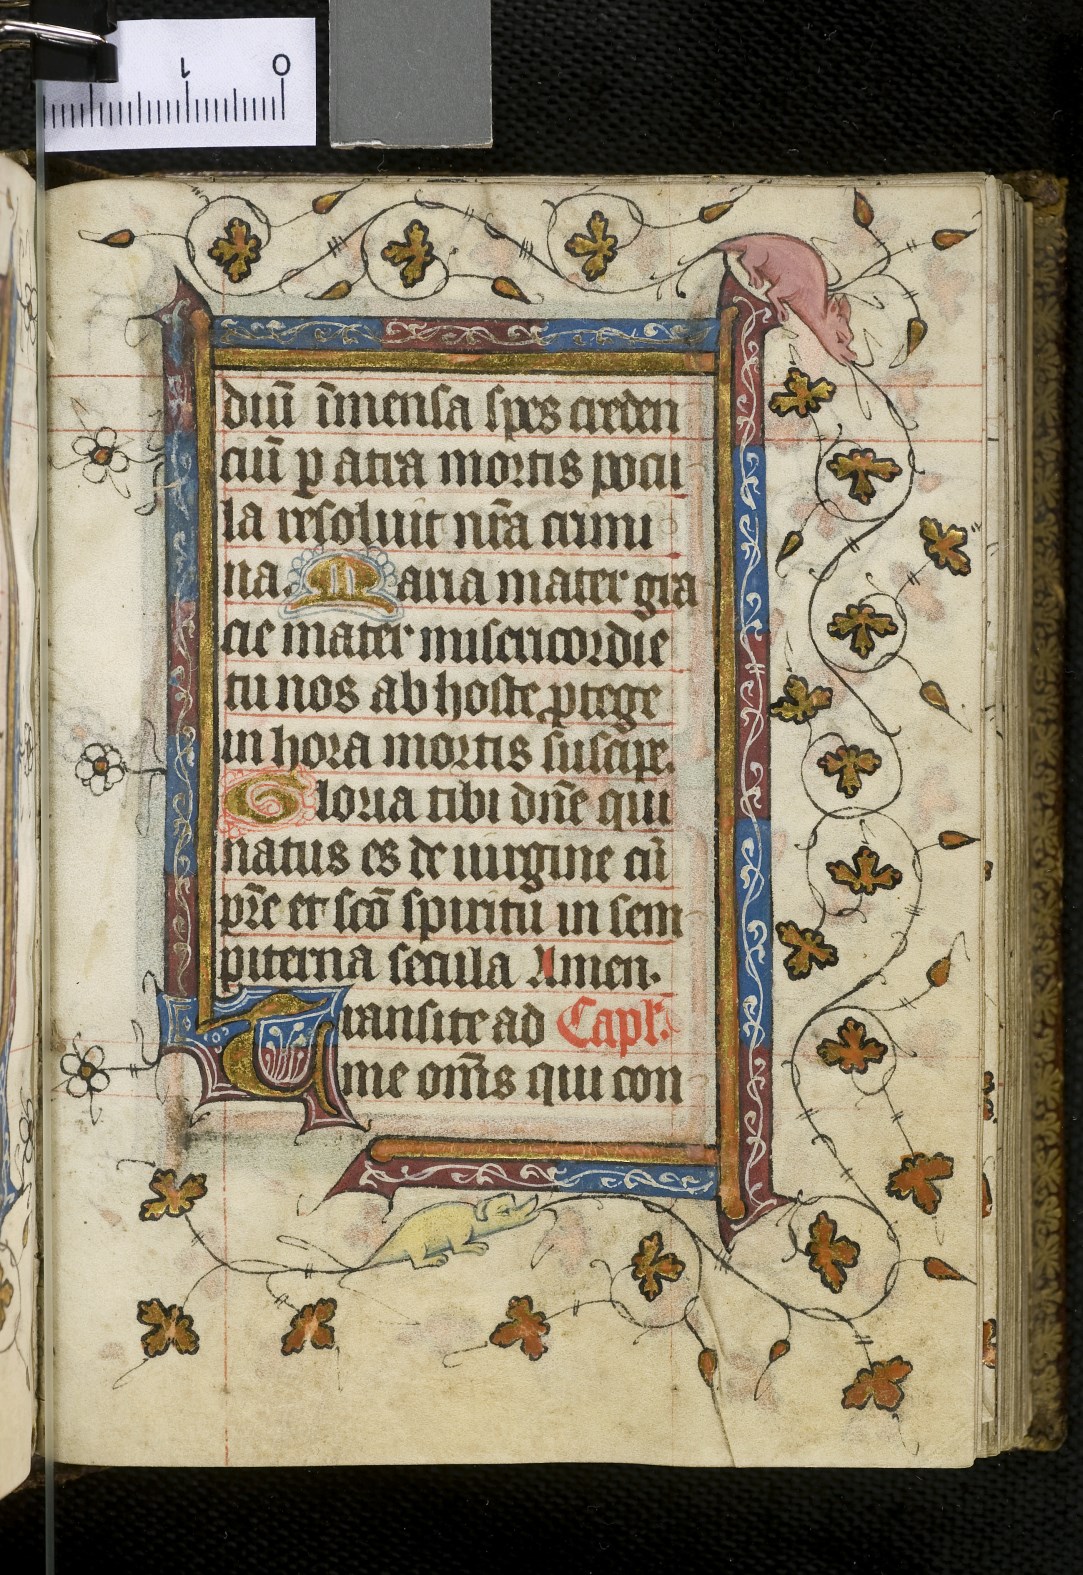 1 0
diū īmensa spes creden
ciū p atra mortis pocu
la resoluit nr̄a crimi
na. Maria mater gra
cie mater misericordie
tu nos ab hoste ꝓtege
in hora mortis suscipe.
Gloria tibi dn̄e qui
natus es de uirgine cū
pr̄e et sc̄o spiritu in sem
piterna secula Amen.
Transite ad Capl'.
me om̄s qui con